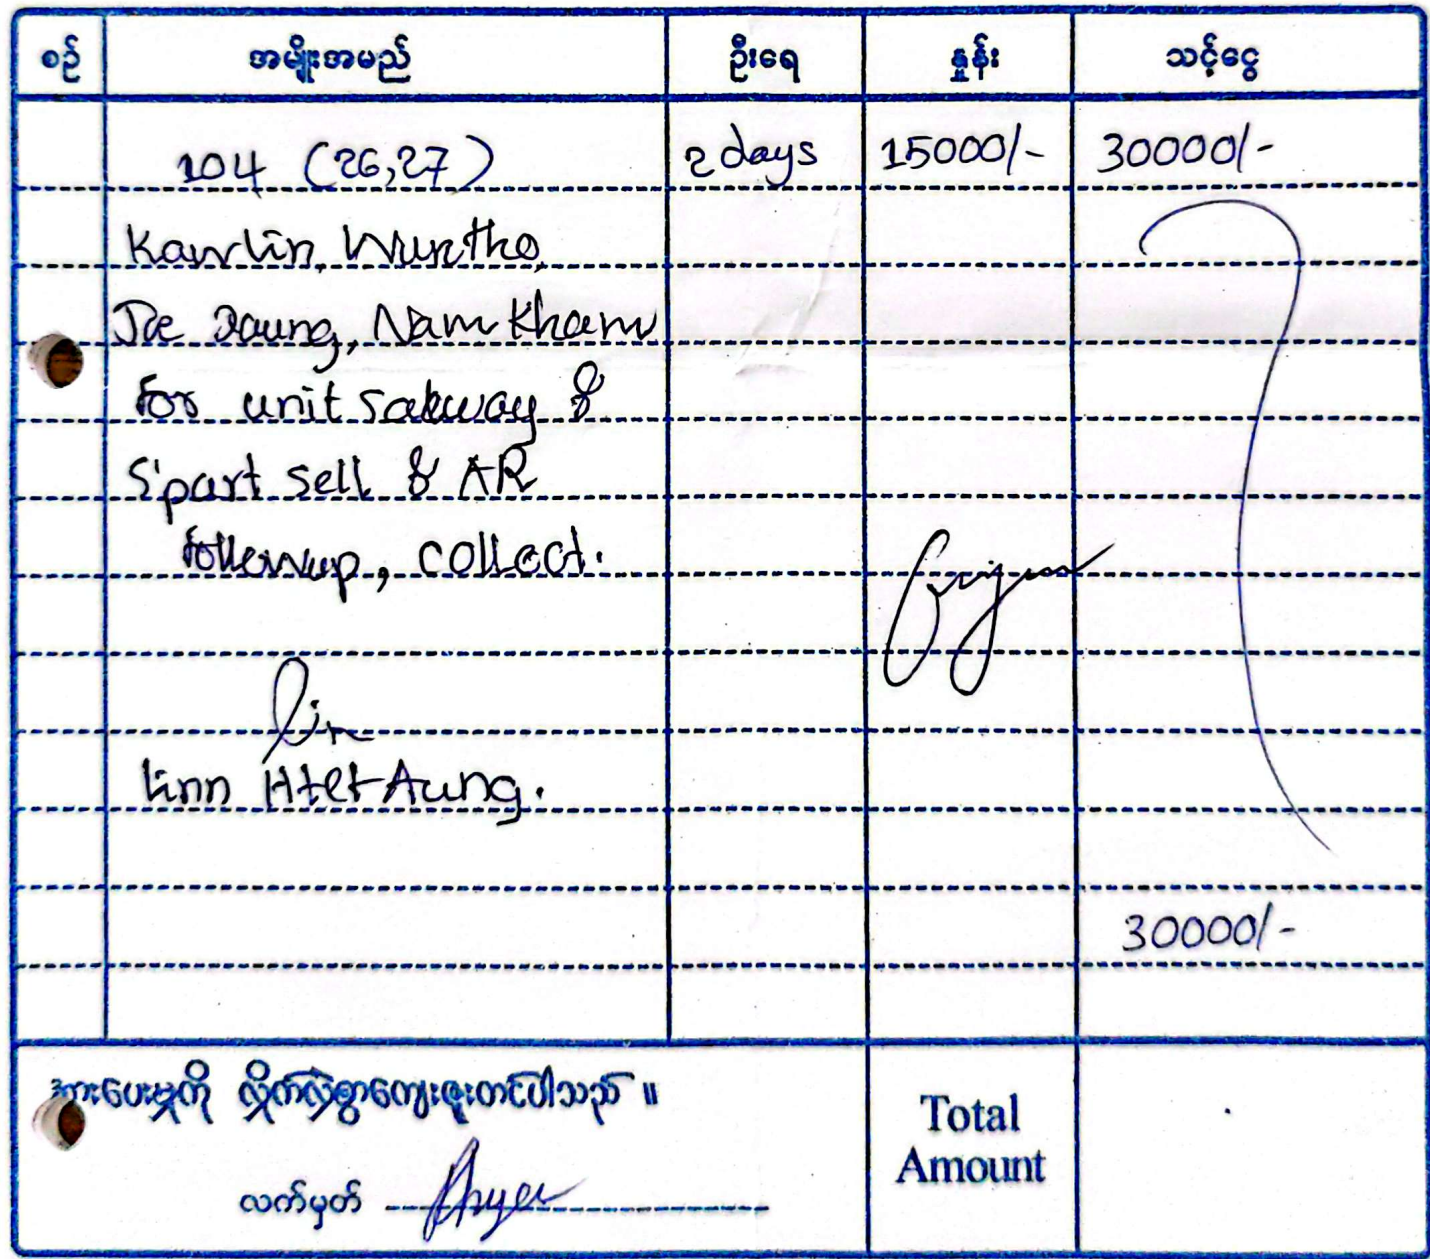 စဉ် အမျိုးအမည် ဦးရေ နှုန်း သင့်ငွေ
104 (26,27) 2 days 15000/- 30000/-
Kawlin, Wuntho,
Nam Kham
for unit &
S'part sell & AR
followup, collect.
Lin
Linn Htet Aung.
30000/-
အားပေးမှုကို လှိုက်လှဲစွာကျေးဇူးတင်ပါသည် ။
Total
Amount
လက်မှတ်